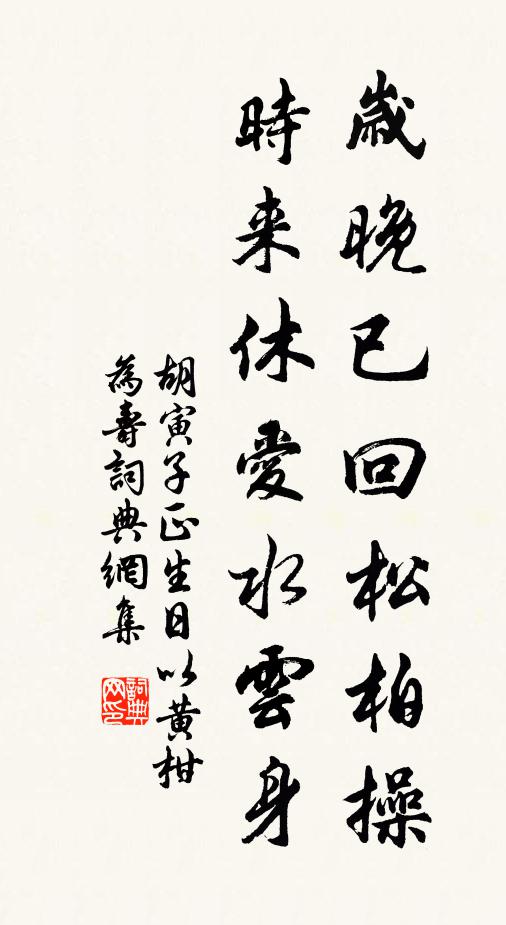 歲晚已回松柏操
時来休愛水雲身
胡寅子正生日以黃柑
為壽詞典網集
詞典網印